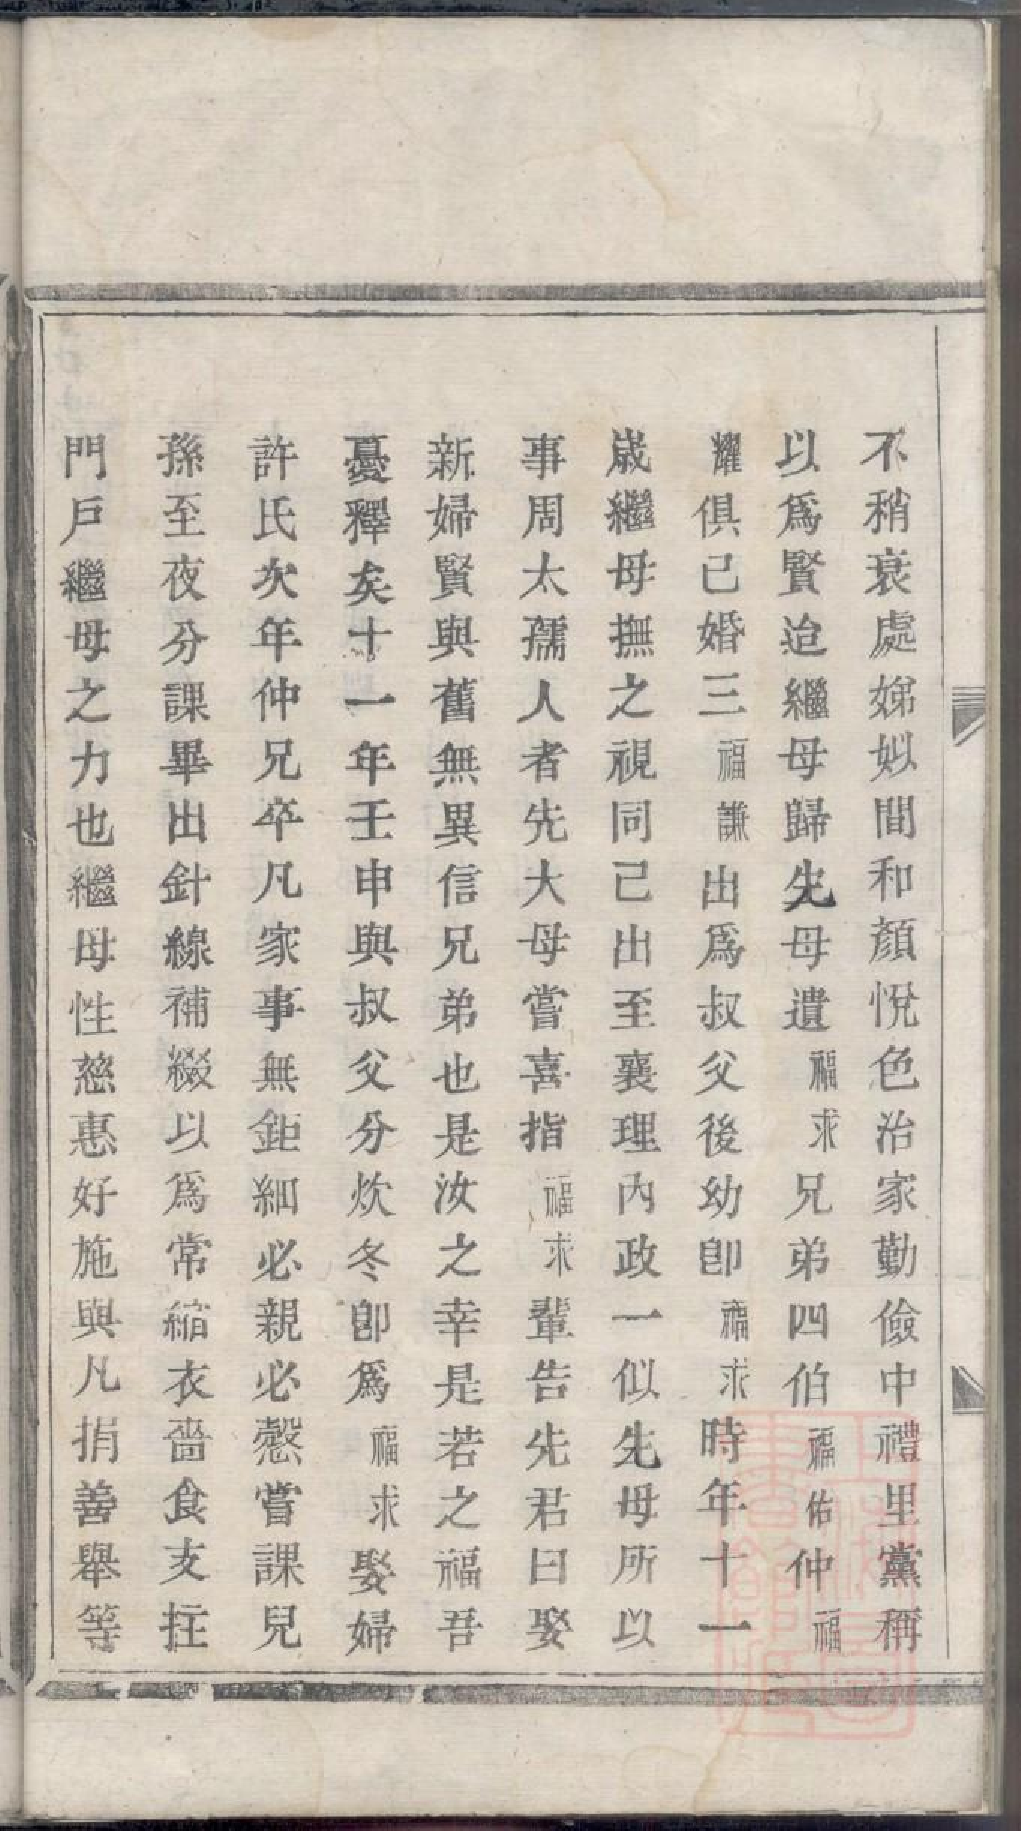 不稍衰處娣姒間和顏悅色治家勤儉中禮里黨稱
以爲賢迨繼母歸先母遺福求兄弟四伯福佑仲福
耀俱已婚三福謙出爲叔父後幼卽福求時年十一
歲繼母撫之視同己出至襄理內政一似先母所以
事周太孺人者先大母嘗喜指福求輩告先君曰娶
新婦賢與舊無異信兄弟也是汝之幸是若之福吾
憂釋矣十一年壬申與叔父分炊冬卽爲福求娶婦
許氏次年仲兄卒凡家事無鉅細必親必慤嘗課兒
孫至夜分課畢出針線補綴以爲常縮衣嗇食支拄
門戶繼母之力也繼母性慈惠好施與凡捐善舉等